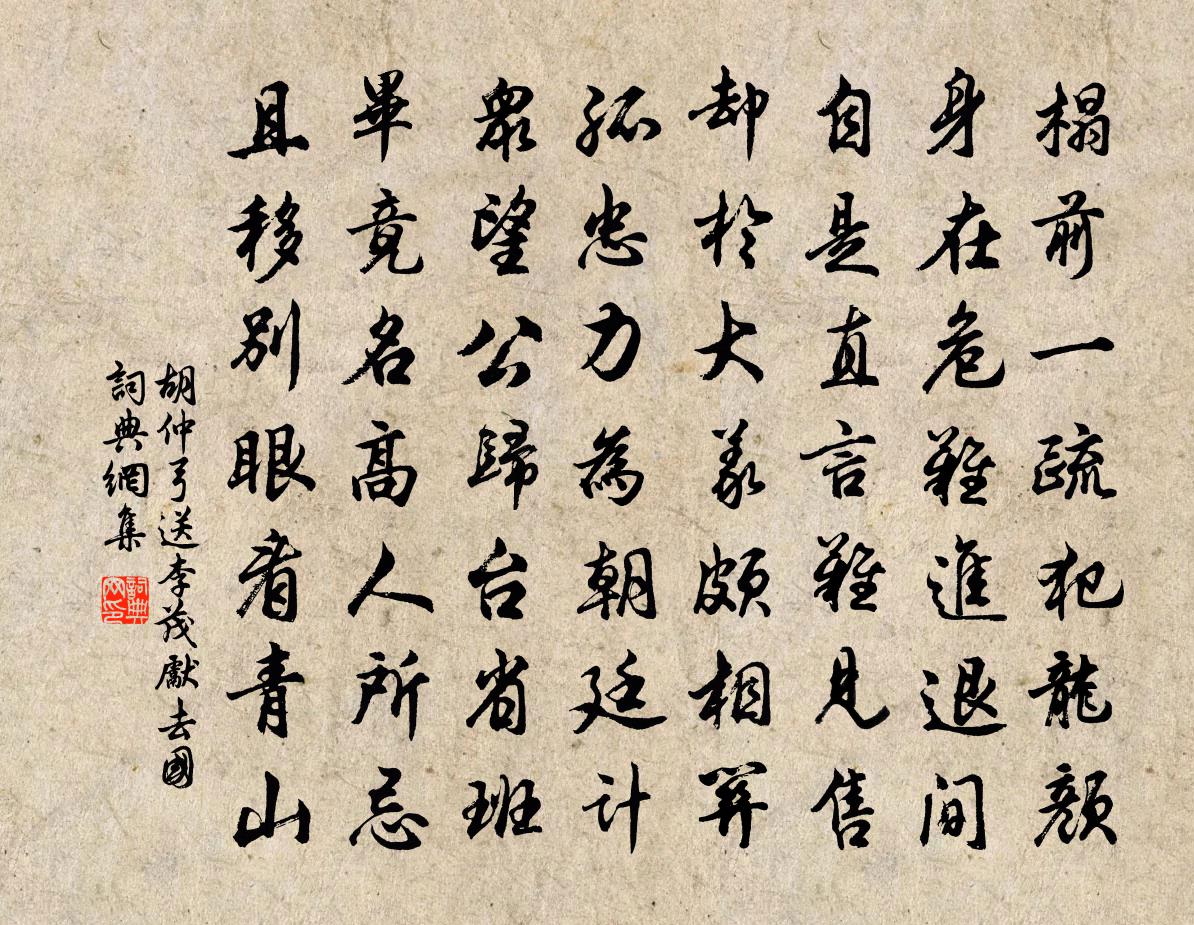 榻前一疏犯龍顏
身在危難進退間
自是直言難見售
却於大義頗相關
孤忠力為朝廷計
眾望公歸台省班
畢竟名高人所忌
且移別眼看青山
胡仲弓送李茂獻去國
詞典網集
詞典網印